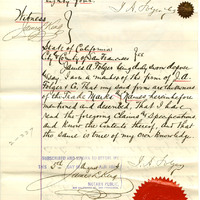 Witness
State of California
City & County of San Francisco } SS
James A. Folger being duly sworn deposes
says, I am a member of the firm of J. A.
Folger & Co. That my said firm are the owners
of the Trade Marks & Names herein before
mentioned and described, that I have
read the foregoing Claims & Specifications
and know the contents thereof, and that
the same is true of my own knowledge.
J. A. Folger
SUBSCRIBED AND SWORN TO BEFORE ME
5th
James L. King
NOTARY PUBLIC